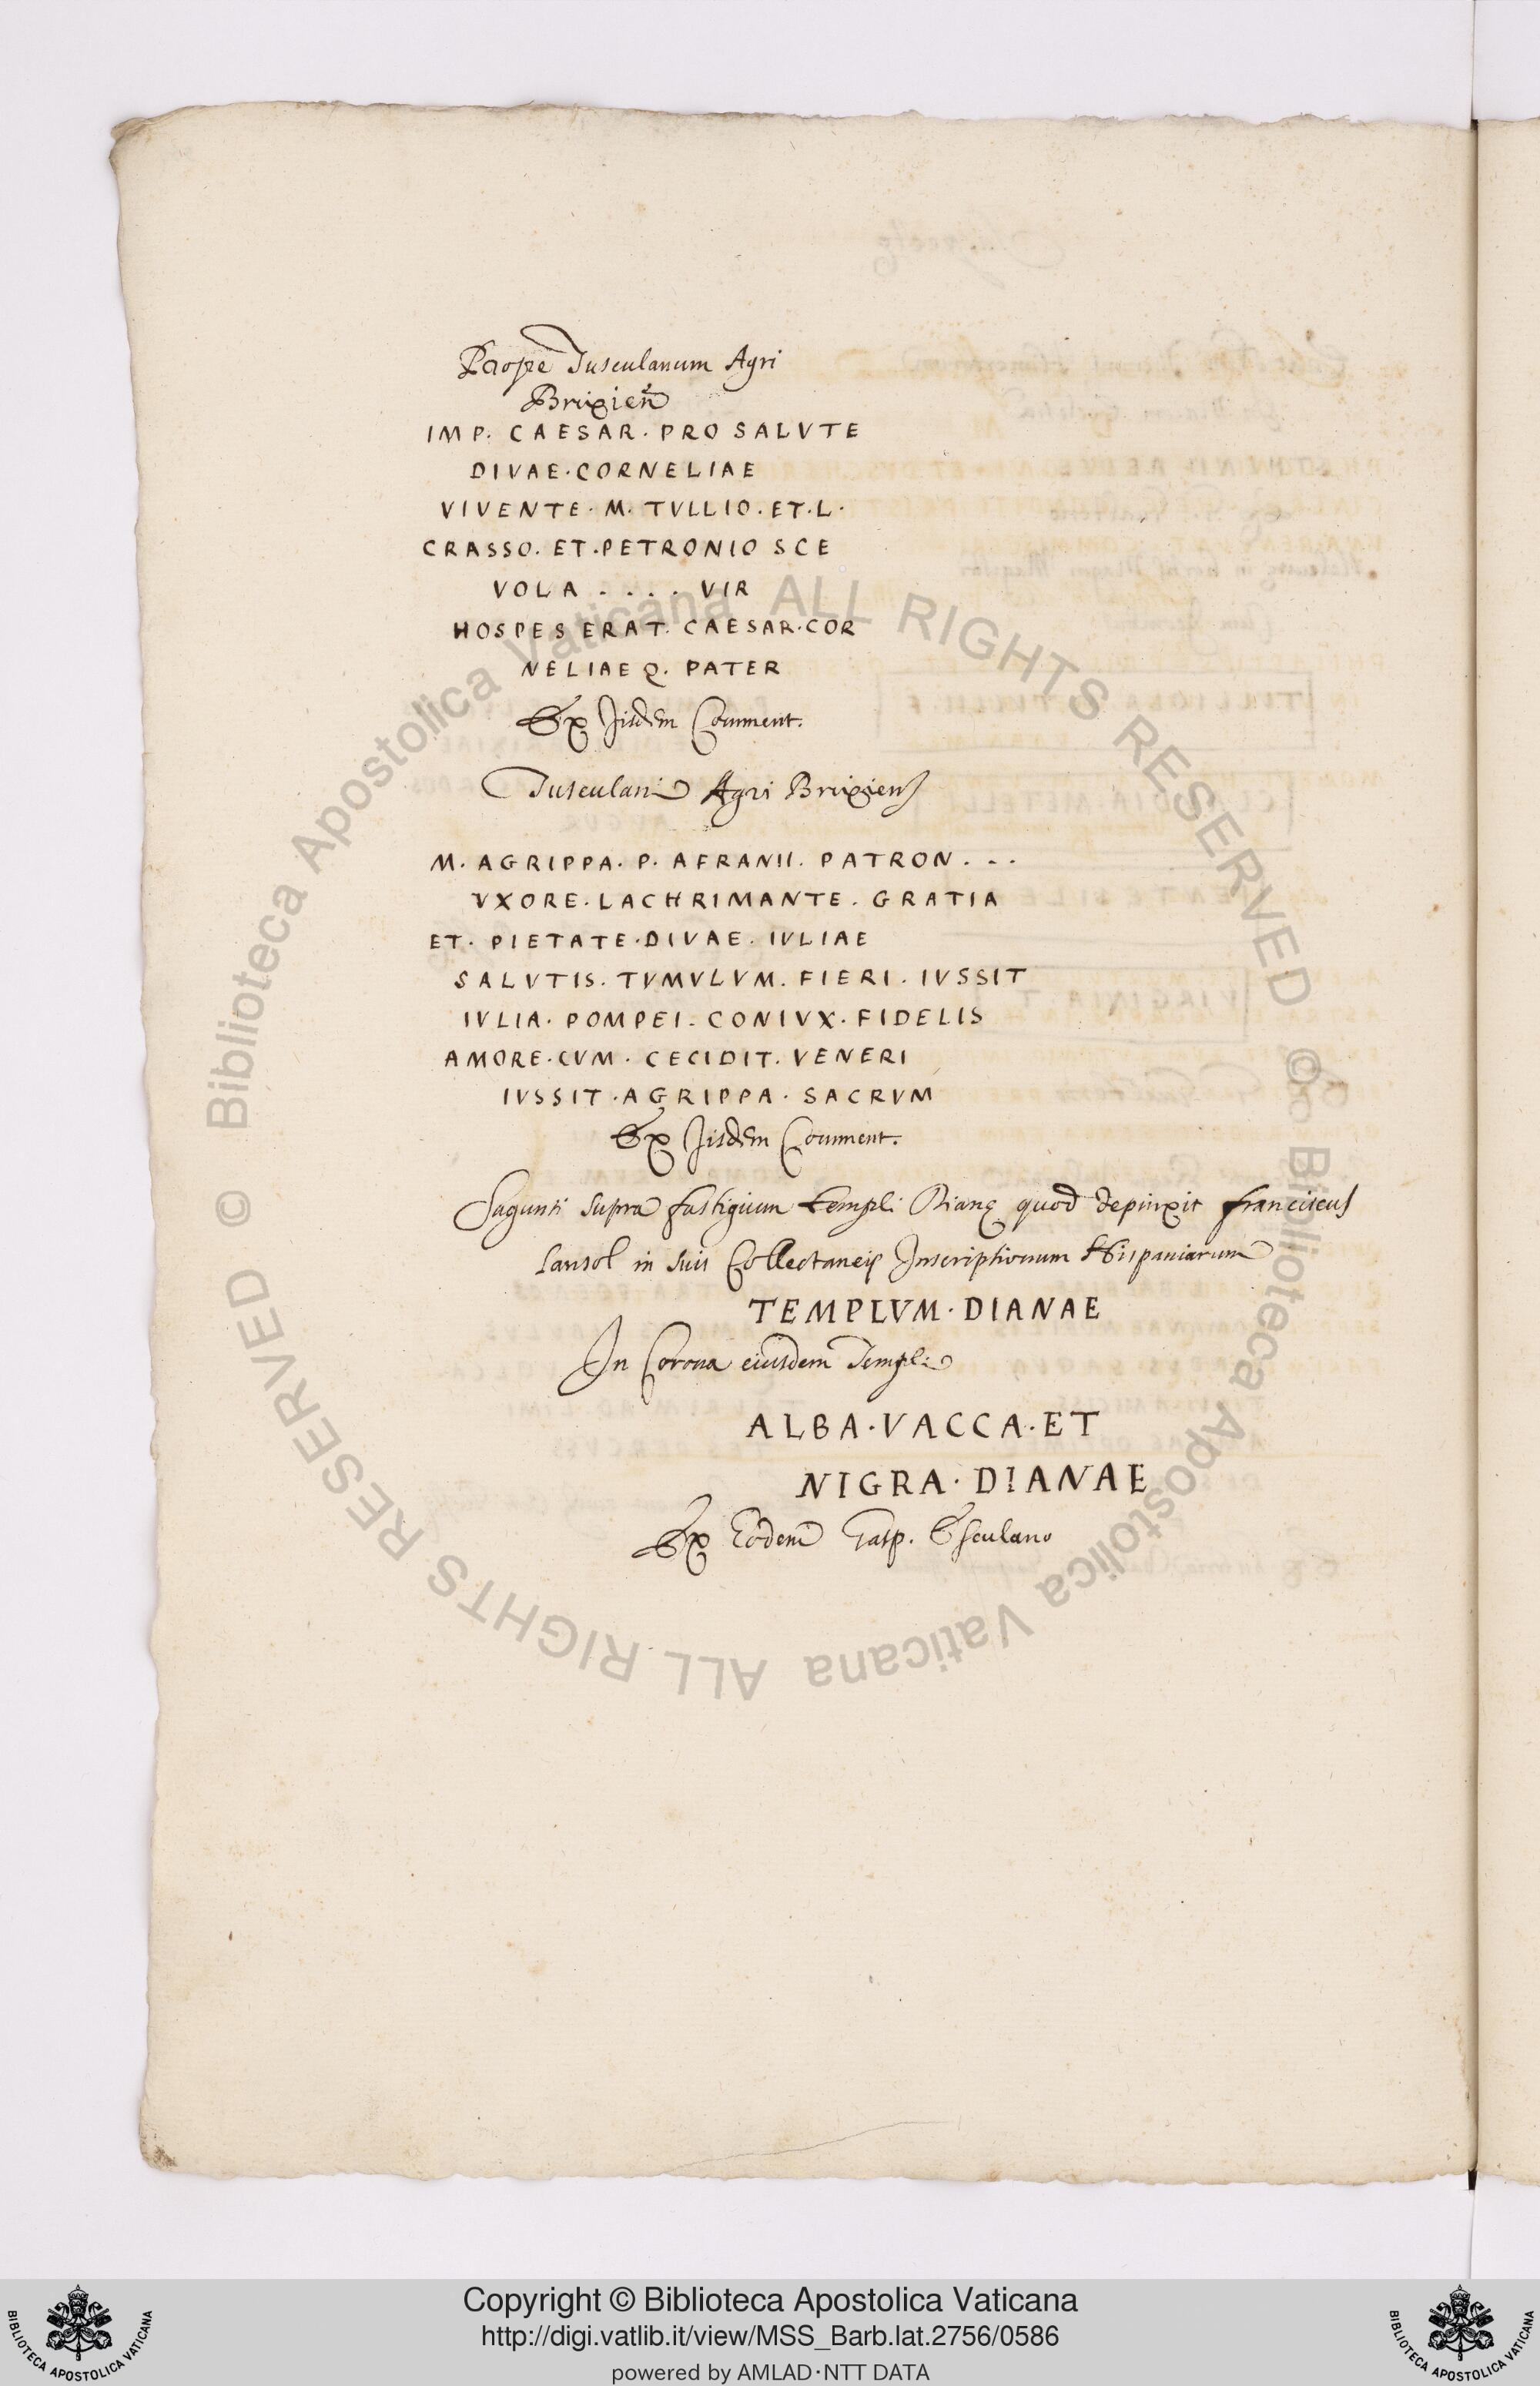 Prope Tusculanum Agri
Brixien̄
IMP. CAESAR. PRO SALVTE
DIVAE. CORNELIAE
VIVENTE. M. TVLLIO. ET. L.
CRASSO. ET. PETRONIO SCE
VOLA . . . . VIR
HOSPES ERAT. CAESAR. COR
NELIAEQ. PATER
Ex Jisdem Comment.
Tusculani Agri Brixiens
M. AGRIPPA. P. AFRANII. PATRON. . .
VXORE. LACHRIMANTE. GRATIA
ET. PIETATE. DIVAE. IVLIAE
SALVTIS. TVMVLVM. FIERI. IVSSIT
IVLIA. POMPEI. CONIVX. FIDELIS
AMORE. CVM. CECIDIT. VENERI
IVSSIT. AGRIPPA. SACRVM
Ex Jisdem Comment.
Sagunti supra fastigium templi Dianę quod depinxit franciscus
Lansol in suis Collectaneis Inscriptionum Hispaniarum
TEMPLVM. DIANAE
In Corona eiusdem Templi
ALBA. VACCA. ET
NIGRA. DIANAE
Ex Eodem Gasp.
© Biblioteca Apostolica Vaticana ALL RIGHTS RESERVED
© Biblioteca Apostolica Vaticana ALL RIGHTS RESERVED
Copyright © Biblioteca Apostolica Vaticana
http://digi.vatlib.it/view/MSS_Barb.lat.2756/0586
powered by AMLAD·NTT DATA
BIBLIOTECA APOSTOLICA VATICANA
BIBLIOTECA APOSTOLICA VATICANA